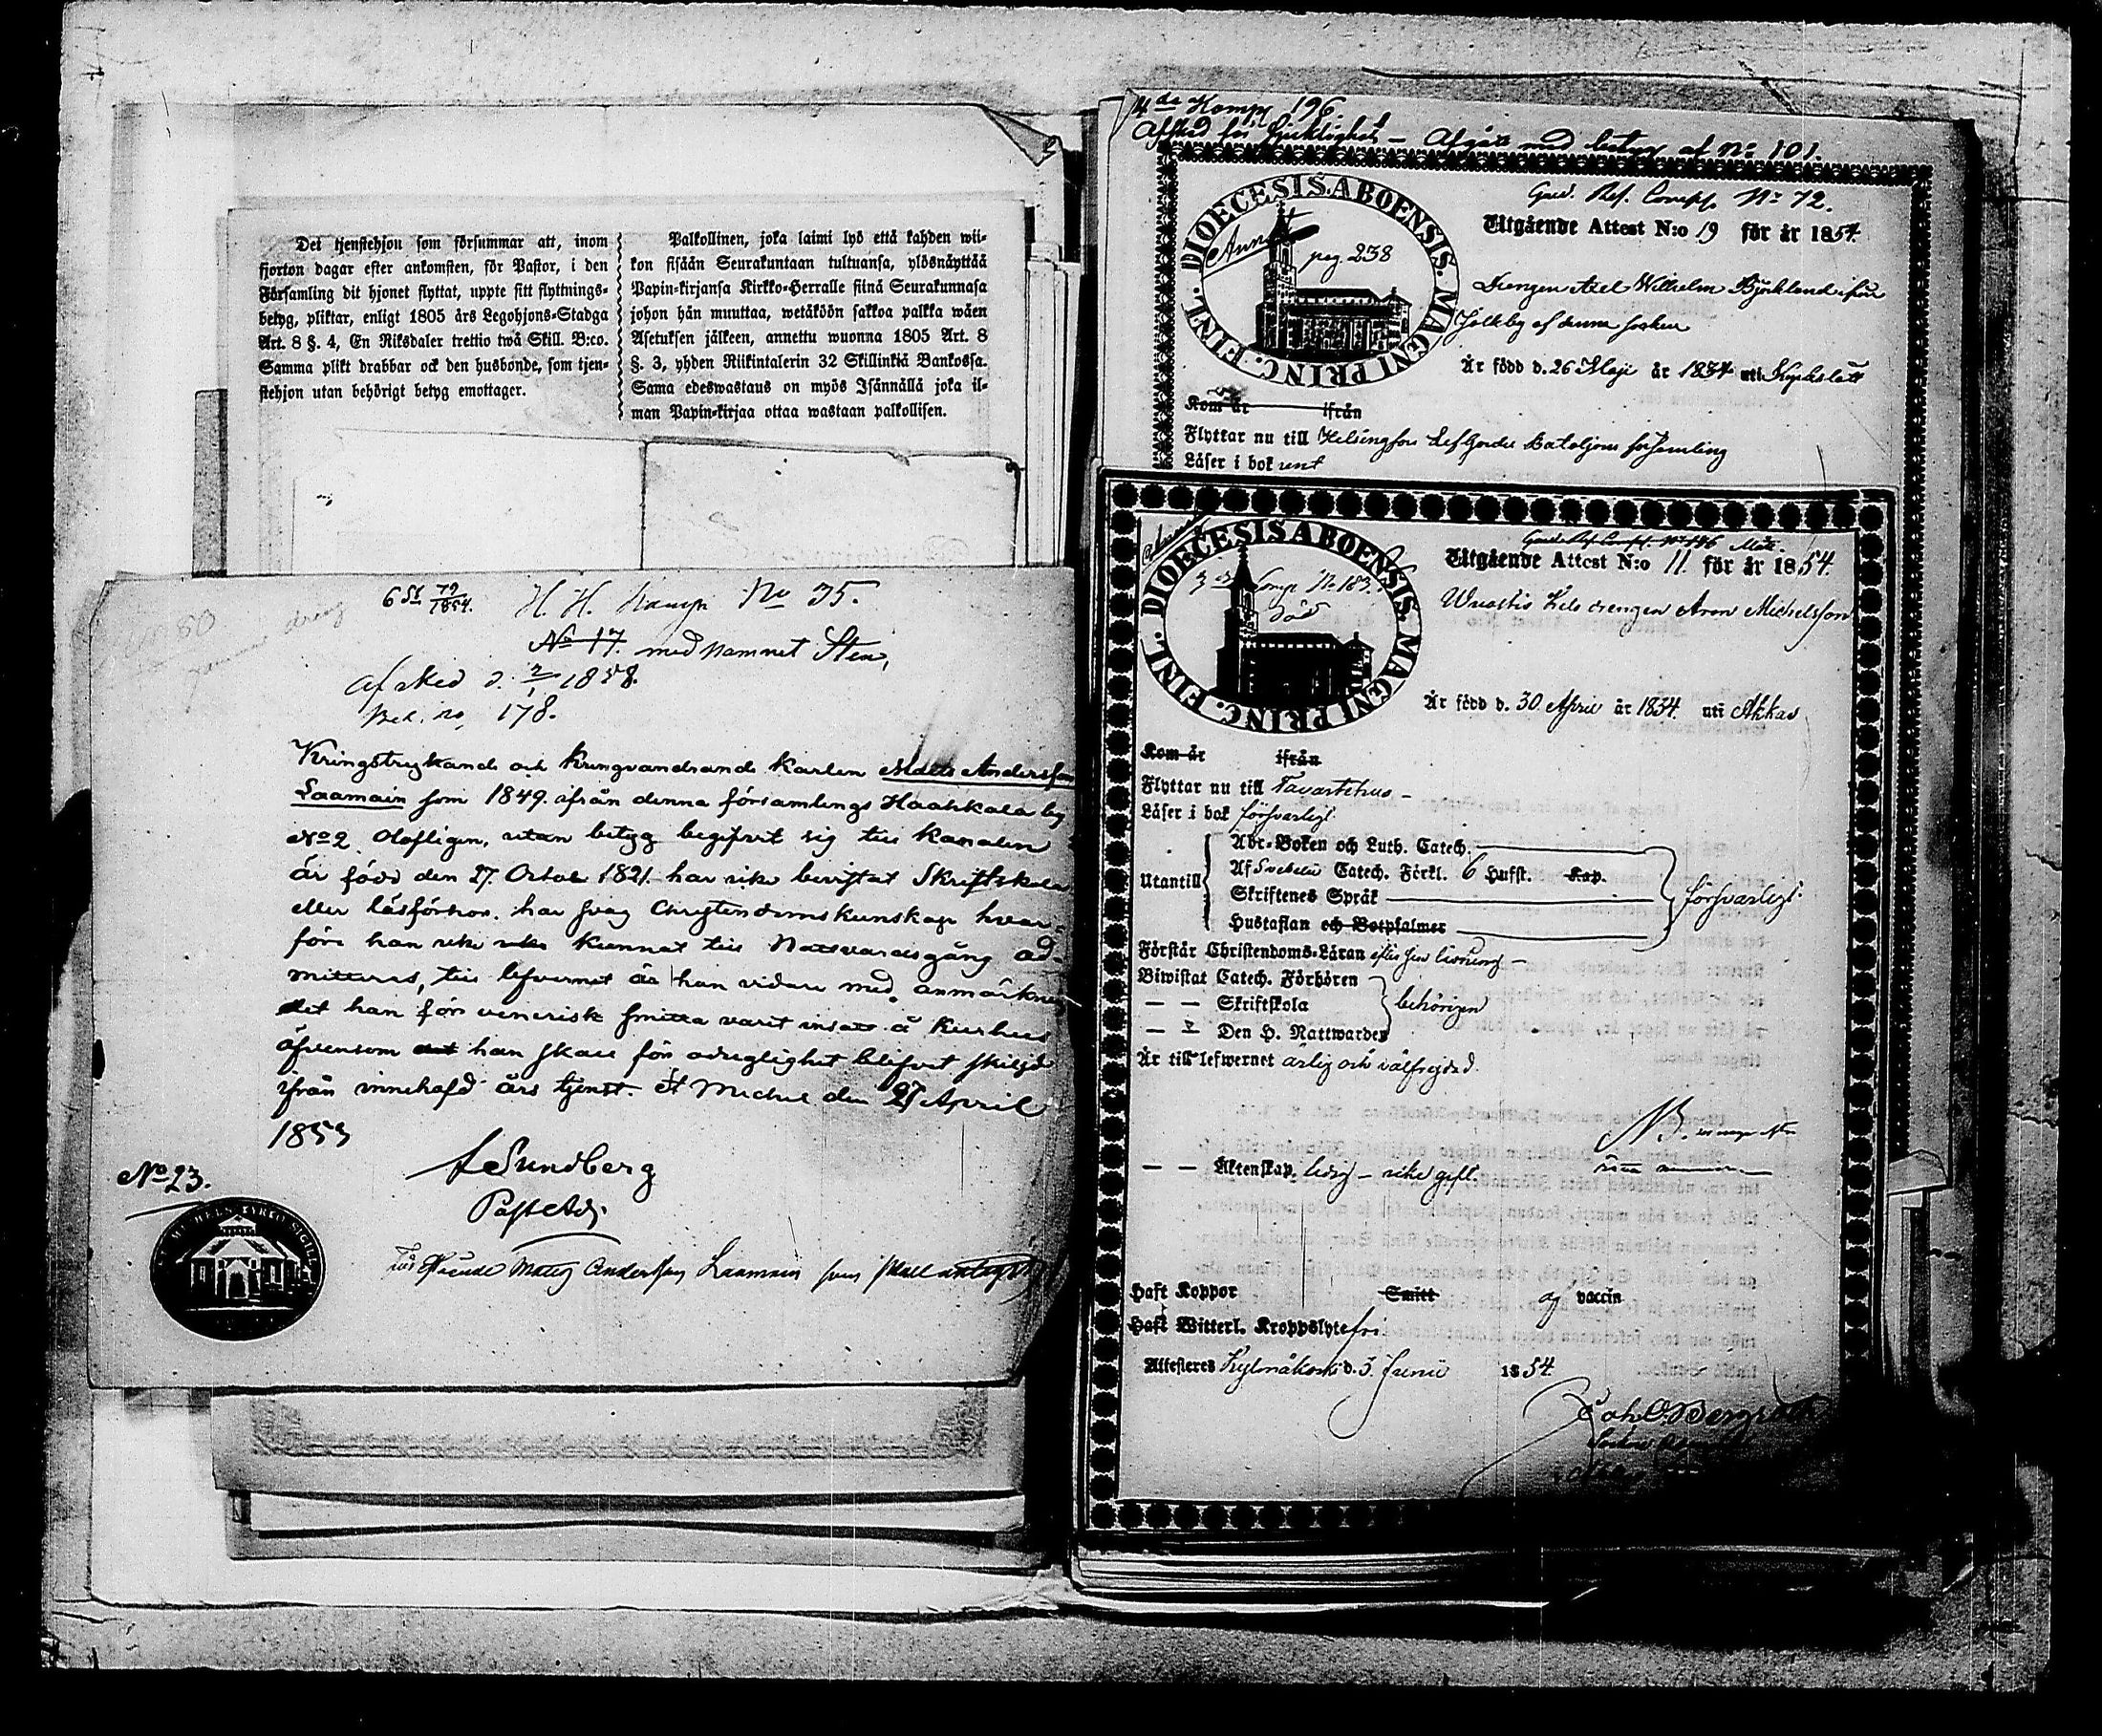 Det tjenstehjon som försummar att, inom
fjorton dagar efter ankomsten, för Pastor, i den
Församling dit hjonet flyttat, uppte sitt flyttnings-
betyg, pliktar, enligt 1805 års Legohjons-Stadga
Art. 8 §. 4, En Riksdaler trettio twå Skill. B:co.
Samma plikt drabbar ock den husbonde, som tjen-
stehjon utan behörigt betyg emottager.
Palkollinen, joka laimi lyö että kahden wii-
kon sisään Seurakuntaan tultuansa, ylösnäyttää
Papin-kirjansa Kirkko-Herralle siinä Seurakunnasa
johon hän muuttaa, wetäköön sakkoa palkka wäen
Asetuksen jälkeen, annettu wuonna 1805 Art. 8
§. 3, yhden Riikintalerin 32 Skillinkiä Bankossa.
Sama edeswastaus on myös Isännällä joka il-
man Papin-kirjaa ottaa wastaan palkollisen.
H. H. Komp No 35.
No 17. med namnet Sten,
Afsked d. 2/1 1858.
Bet. no 178.
Kringstrykande och kringvandrande karlen Mats Andersson
Laamain som 1849 ifrån denna församlings Haahkala by
No 2 olofligen, utan betyg begifvit sig till kanalen
är född den 27. Octob 1821. har icke bevistat Skriftskola
eller läsförhör. har svag Christendomskunskap hvar-
före han icke kunnat till Nattvardsgång ad-
mitteras, till lefvernet är han vidare med anmärkn
det han för venerisk smitta varit insatt å Kurhus
äfvensom han skall för oduglighet blifvit skiljd
ifrån innehafd års tjenst. St Michel den 27 April
1853
A Sundberg
Past Adj.
No 23.
Laamain som skall antagas
4de Komp 196.
Afsked för sjuklighet – Afgått med betyg af No 101.
DIOECESIS ABOENSIS. MAGNI PRINC. FINL.
pag. 238
Gard. Res. Comp. No 72.
Utgående Attest N:o 19 för år 1854.
Drengen Axel Wilhelm Björklund ifrån
Jolkby af denna socken
Är född d. 26 Maji år 1834 uti Kyrkslätt
Kom år ifrån
Flyttar nu till Helsingfors Lif Gardes Bataljons församling
Läser i bok rent
DIOECESIS ABOENSIS. MAGNI PRINC. FINL.
3de Komp No 183.
död
Utgående Attest N:o 11. för år 1854.
drengen Aron Michelsson
Är född d. 30 April år 1834. uti Akkas
Kom år ifrån
Flyttar nu till Tavastehus –
Läser i bok försvarligt
Utantill
Abc-Boken och Luth. Catech.
Af Svebelii Catech. Förkl. 6 Hufst. Kap.
Skriftenes Språk
Hustaflan och Botpsalmer
försvarligt.
Förstår Christendoms-Läran efter sin läsning –
Biwistat Catech. Förhören
— — Skriftskola
— — Den H. Nattwarden
behörigen
Är till lefwernet ärlig och välfrejdad.
NB.
— — Äktenskap. ledig – icke gift.
Haft Koppor Smitt af vaccin
Haft Witterl. Kroppslyte fri
Attesteres Kylmäkoski d. 3. Junii 1854.
Joh. O. Bergroth